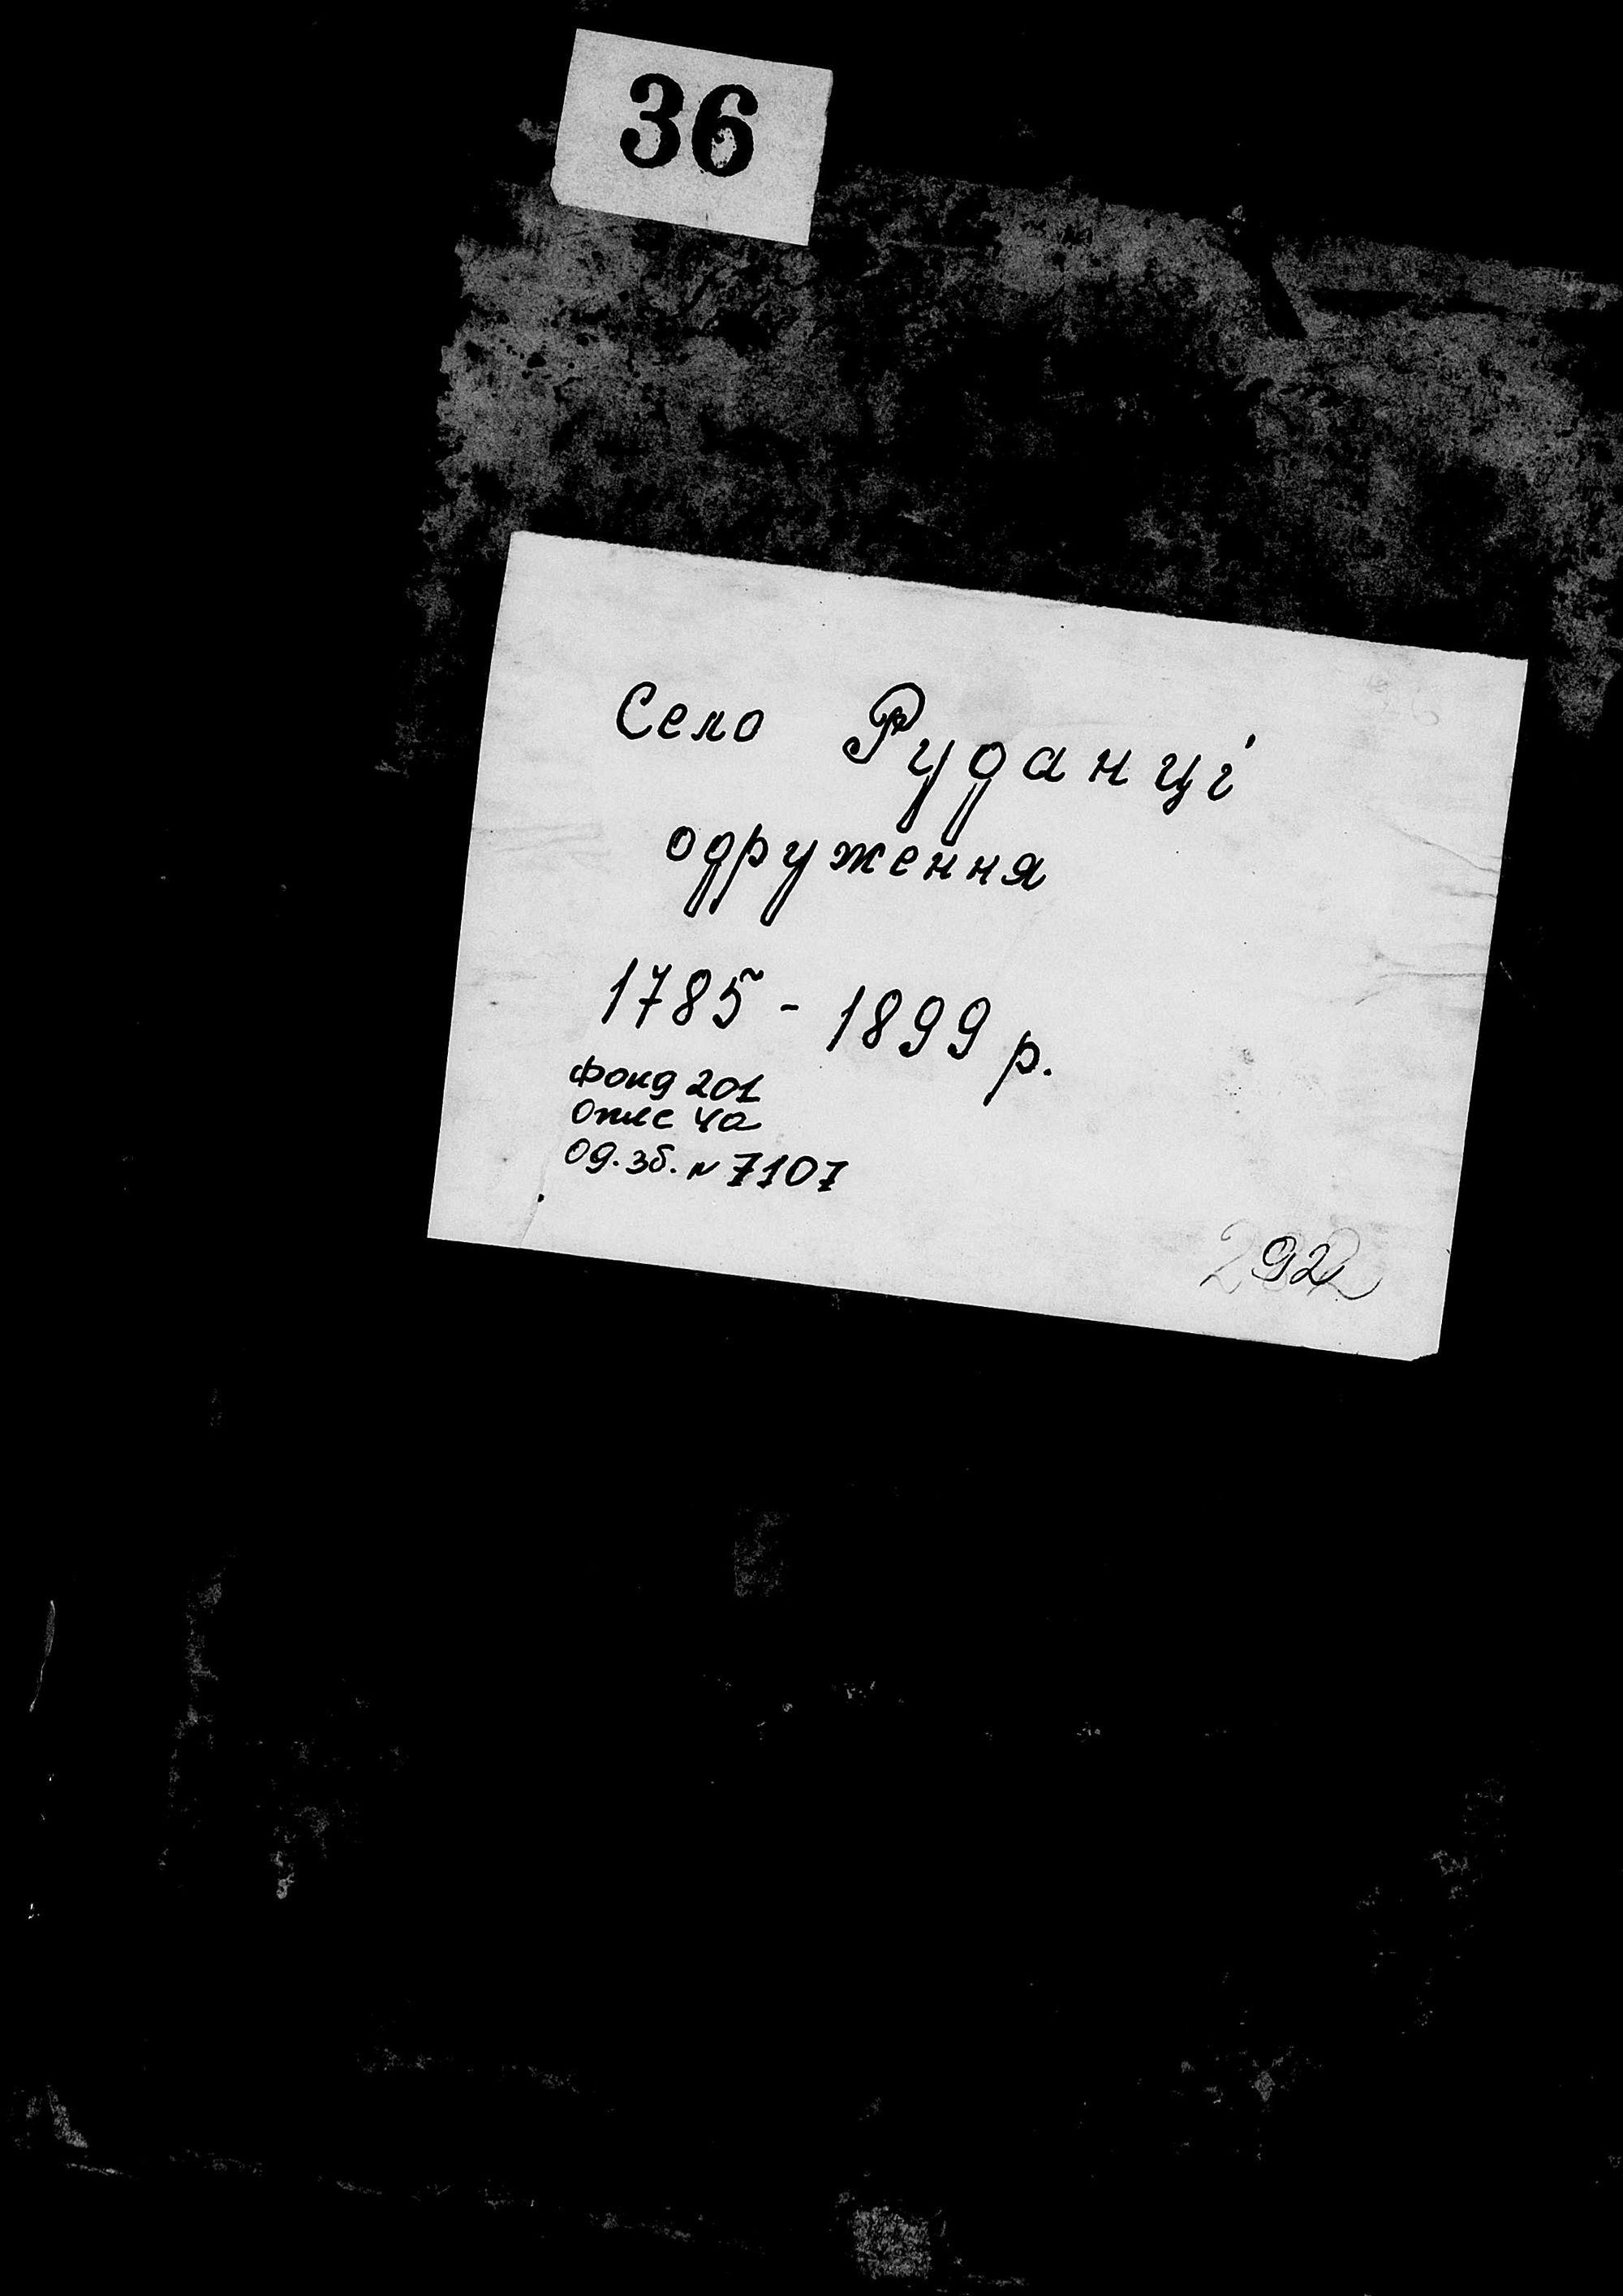 36
Село Руданці
одруження
1785 - 1899 р.
Фонд 201
Опис 4а
Од. зб. № 7107
92